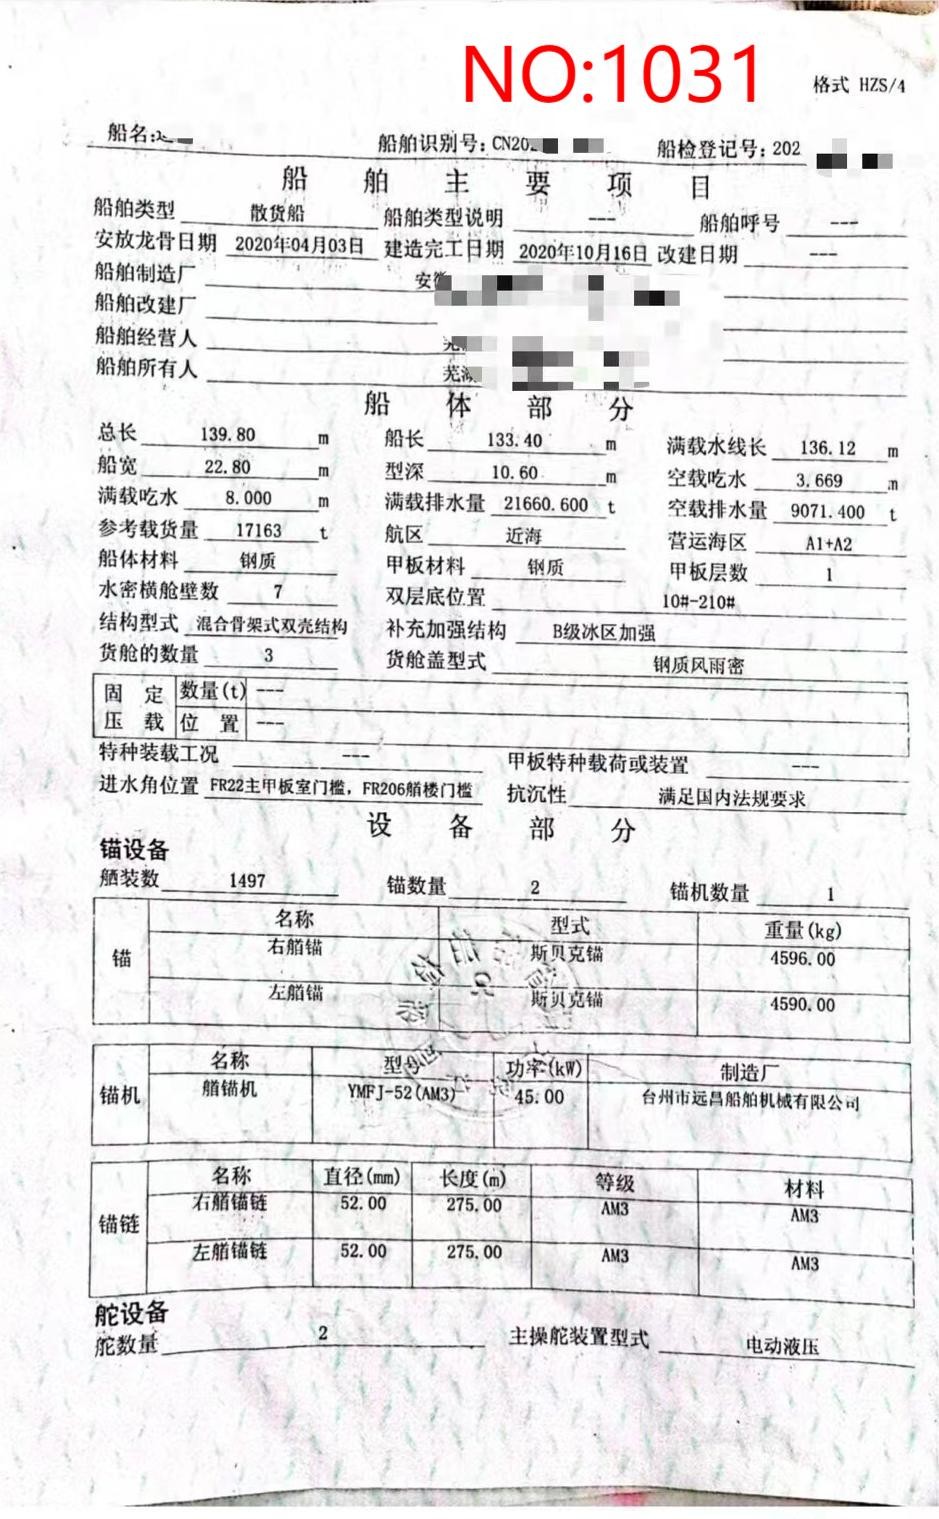 NO:1031
格式 HZS/4
船名: 船舶识别号: CN20 船检登记号: 202
船舶主要项目
船舶类型 散货船 船舶类型说明 --- 船舶呼号 ---
安放龙骨日期 2020年04月03日 建造完工日期 2020年10月16日 改建日期 ---
船舶制造厂 安徽
船舶改建厂
船舶经营人 芜
船舶所有人 芜湖
船体部分
总长 139.80 m 船长 133.40 m 满载水线长 136.12 m
船宽 22.80 m 型深 10.60 m 空载吃水 3.669 m
满载吃水 8.000 m 满载排水量 21660.600 t 空载排水量 9071.400 t
参考载货量 17163 t 航区 近海 营运海区 A1+A2
船体材料 钢质 甲板材料 钢质 甲板层数 1
水密横舱壁数 7 双层底位置 10#-210#
结构型式 混合骨架式双壳结构 补充加强结构 B级冰区加强
货舱的数量 3 货舱盖型式 钢质风雨密
固定压载 数量(t) ---
位置 ---
特种装载工况 --- 甲板特种载荷或装置 ---
进水角位置 FR22主甲板室门槛，FR206艏楼门槛 抗沉性 满足国内法规要求
设备部分
锚设备
舾装数 1497 锚数量 2 锚机数量 1
锚 名称 型式 重量(kg)
右艏锚 斯贝克锚 4596.00
左艏锚 斯贝克锚 4590.00
锚机 名称 型号 功率(kW) 制造厂
艏锚机 YMFJ-52(AM3) 45.00 台州市远昌船舶机械有限公司
锚链 名称 直径(mm) 长度(m) 等级 材料
右艏锚链 52.00 275.00 AM3 AM3
左艏锚链 52.00 275.00 AM3 AM3
舵设备
舵数量 2 主操舵装置型式 电动液压